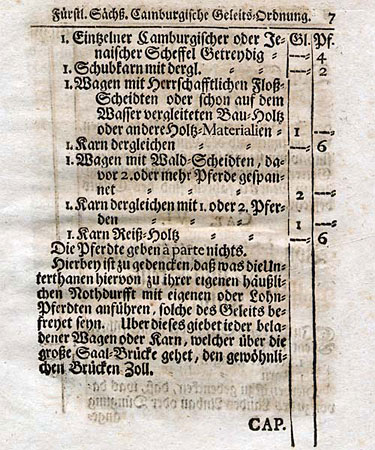 Fürstl. Sächß. Camburgische Geleits-Ordnung. 7
Gl. Pf.
1. Eintzelner Camburgischer oder Je-
naischer Scheffel Getreydig - — 4
1. Schubkarn mit dergl. - - — 2
1. Wagen mit Herrschafftlichen Floß-
Scheidten oder schon auf dem
Wasser vergleiteten Bau-Holtz
oder andere Holtz-Materialien - 1 —
1. Karn dergleichen - - — 6
1. Wagen mit Wald-Scheidten, da-
vor 2. oder mehr Pferde gespan-
net - - - 2 —
1. Karn dergleichen mit 1. oder 2. Pfer-
den - - - 1 —
1. Karn Reiß-Holtz - - — 6
Die Pferdte geben à parte nichts.
Hierbey ist zu gedencken, daß was die Un-
terthanen hiervon zu ihrer eigenen häußli-
chen Nothdurfft mit eigenen oder Lohn-
Pferdten anführen, solche des Geleits be-
freyet seyn. Über dieses giebet ieder bela-
dener Wagen oder Karn, welcher über die
große Saal-Brücke gehet, den gewöhnli-
chen Brücken Zoll.
CAP.